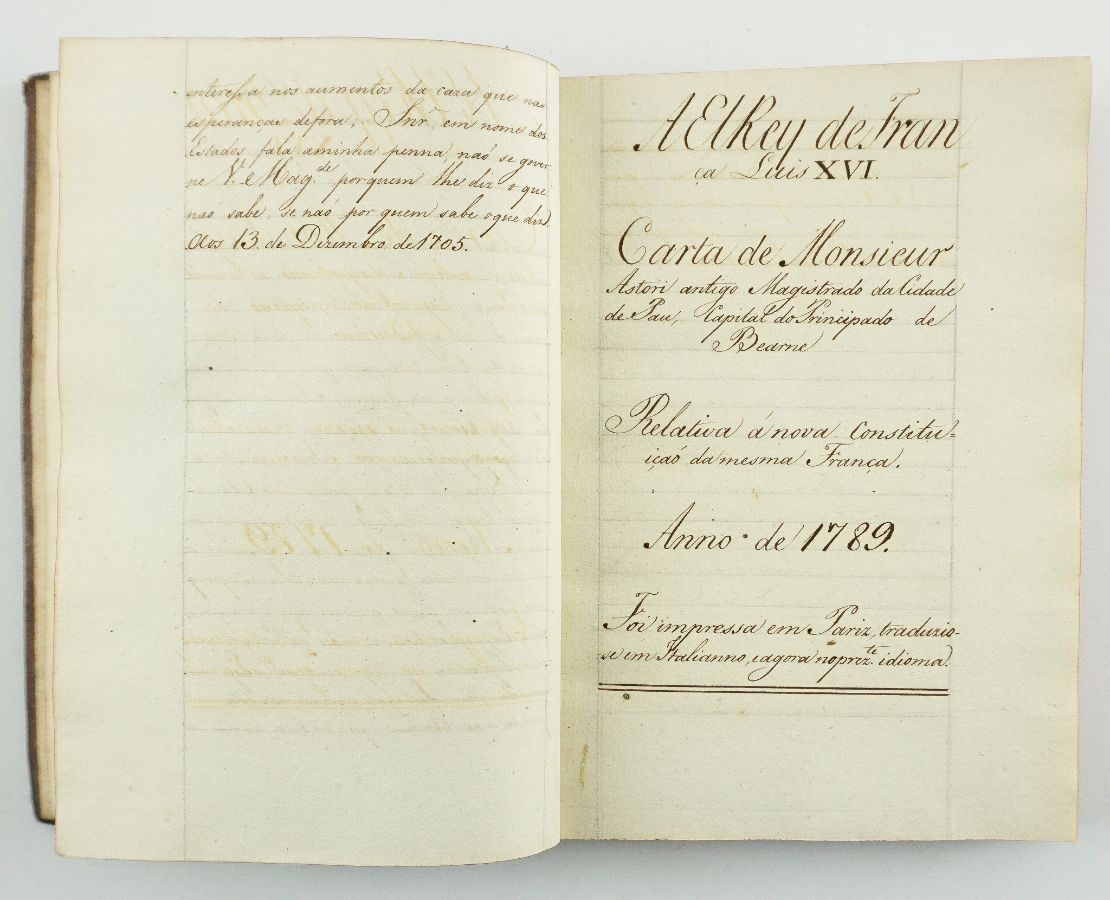 enteressa nos aumentos da caza que nas
esperanças defora, Snr. em nome dos
Estados fala aminha penna, naó se gover
ne V. e Mag.de porquem lhe diz o que
naó sabe, se naó por quem sabe oque diz.
Aos 13. de Dezembro de 1705.
A ElRey de Fran
ça Luis XVI.
Carta de Monsieur
Astori antigo Magistrado da Cidade
de Pau, Capital do Principado de
Bearne
Relativa á nova Constitu-
içaó da mesma França.
Anno de 1789.
Foi impressa em Pariz, traduzio-
se em Italianno, e agora no prez.te idioma.